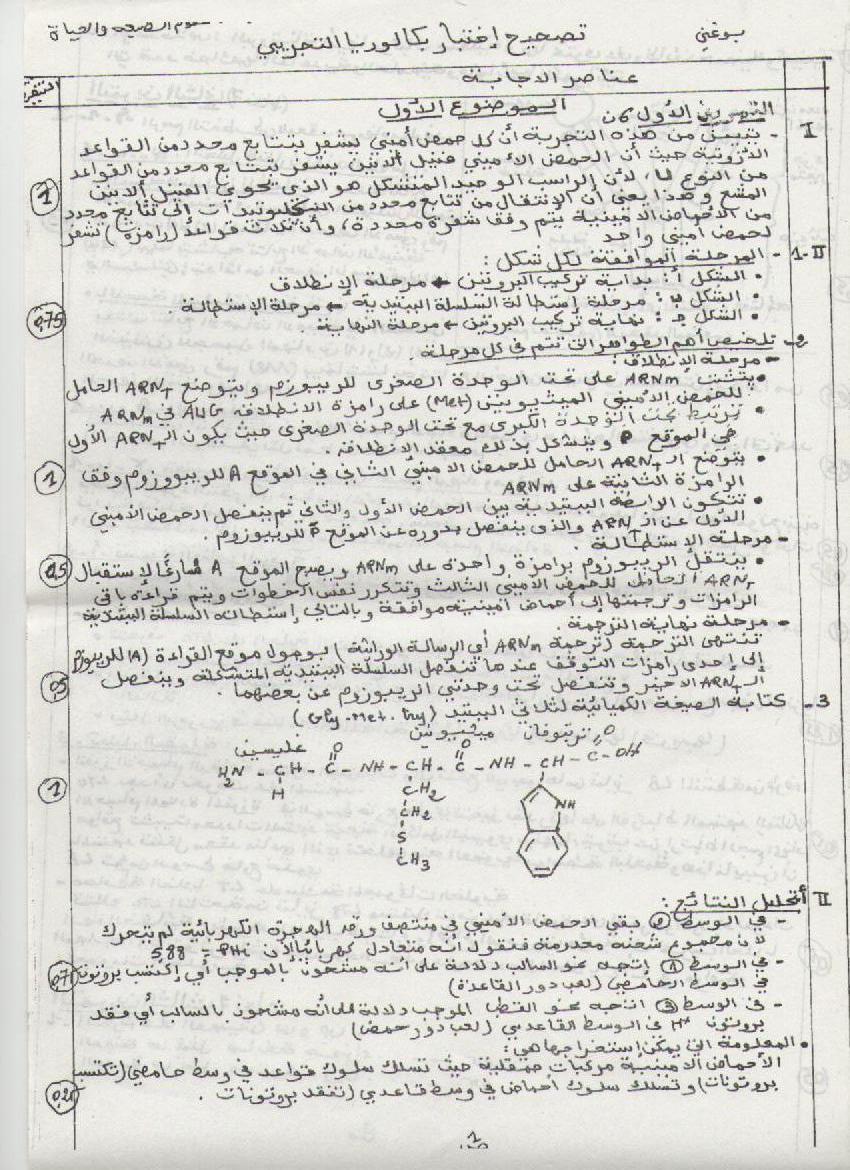 علوم الطبيعة والحياة
بوغني
تصحيح إختبار بكالوريا التجريبي
عناصر الاجابة
التنقيط
الموضوع الأول
التمرين الأول 6ن
I - يتبين من هذه التجربة أن كل حمض أميني يشفر بتتابع محدد من القواعد
الآزوتية حيث أن الحمض الأميني فنيل ألانين يشفر بتتابع محدد من القواعد
من النوع U، لأن الراسب الوحيد المتشكل هو الذي يحوي الفنيل ألانين
المشع وهذا يعني أن الإنتقال من تتابع محدد من النكليوتيدات إلى تتابع محدد
من الأحماض الأمينية يتم وفقا شفرة محددة، وأن ثلاث قواعد (رامزة) تشفر
لحمض أميني واحد
1
II-1 - المرحلة الموافقة لكل شكل:
• الشكل أ: بداية تركيب البروتين ← مرحلة الإنطلاق
• الشكل ب: مرحلة إستطالة السلسلة الببتيدية ← مرحلة الإستطالة.
• الشكل جـ: نهاية تركيب البروتين ← مرحلة النهاية
0,75
2- تلخيص أهم الظواهر التي تتم في كل مرحلة:
- مرحلة الإنطلاق:
• يتثبت ARNm على تحت الوحدة الصغرى للريبوزوم ويتوضع ARNT الحامل
للحمض الأميني الميثيونين (Met) على رامزة الانطلاقة AUG في ARNm
• ترتبط تحت الوحدة الكبرى مع تحت الوحدة الصغرى حيث يكون الـ ARNT الأول
في الموقع P ويتشكل بذلك معقد الانطلاقة.
• يتوضع الـ ARNT الحامل للحمض الاميني الثاني في الموقع A للريبوزوم وفق
الرامزة الثانية على ARNm
1
• تتكون الرابطة الببتيدية بين الحمض الأول والثاني ثم ينفصل الحمض الأميني
الأول عن الـ ARNT والذي ينفصل بدوره عن الموقع P للريبوزوم.
- مرحلة الإستطالة:
• ينتقل الريبوزوم برامزة واحدة على ARNm ويصبح الموقع A فارغا لإستقبال
ARNT الحامل للحمض الأميني الثالث وتتكرر نفس الخطوات ويتم قراءة باقي
الرامزات وترجمتها إلى أحماض أمينية موافقة وبالتالي إستطالة السلسلة الببتيدية
0,5
- مرحلة نهاية الترجمة:
تنتهي الترجمة (ترجمة ARNm أي الرسالة الوراثية) بوصول موقع القراءة (A) للريبوزوم
إلى إحدى رامزات التوقف عندها تنفصل السلسلة الببتيدية المتشكلة وينفصل
الـ ARNT الأخير وتنفصل تحت وحدتي الريبوزوم عن بعضهما.
0,5
3- كتابة الصيغة الكميائية لثلاثي الببتيد (Gly-Met-
غليسين ميثيونين تربتوفان
H2N - CH - C - NH - CH - C - NH - CH - C - OH
O O O
H CH2
CH2
S
CH3
NH
1
II أ تحليل النتائج:
- في الوسط 2 بقي الحمض الأميني في منتصف ورقة الهجرة الكهربائية لم يتحرك
لأن مجموع شحنه معدومة فنقول أنه متعادل كهربائيا لأن PHi = 5,88
- في الوسط 1 إتجه نحو السالب دلالة على أنه مشحون بالموجب أي إكتسب بروتونا
في الوسط الحامضي (لعب دور القاعدة)
0,75
- في الوسط 3 اتجه نحو القطب الموجب دلالة على أنه مشحون بالسالب أي فقد
بروتون H+ في الوسط القاعدي (لعب دور حمض)
• المعلومة التي يمكن إستخراجها هي:
الأحماض الأمينية مركبات حمقلية حيث تسلك سلوك قواعد في وسط حامضي (تكتسب
بروتونات) وتسلك سلوك أحماض في وسط قاعدي (تفقد بروتونات.
0,25
1